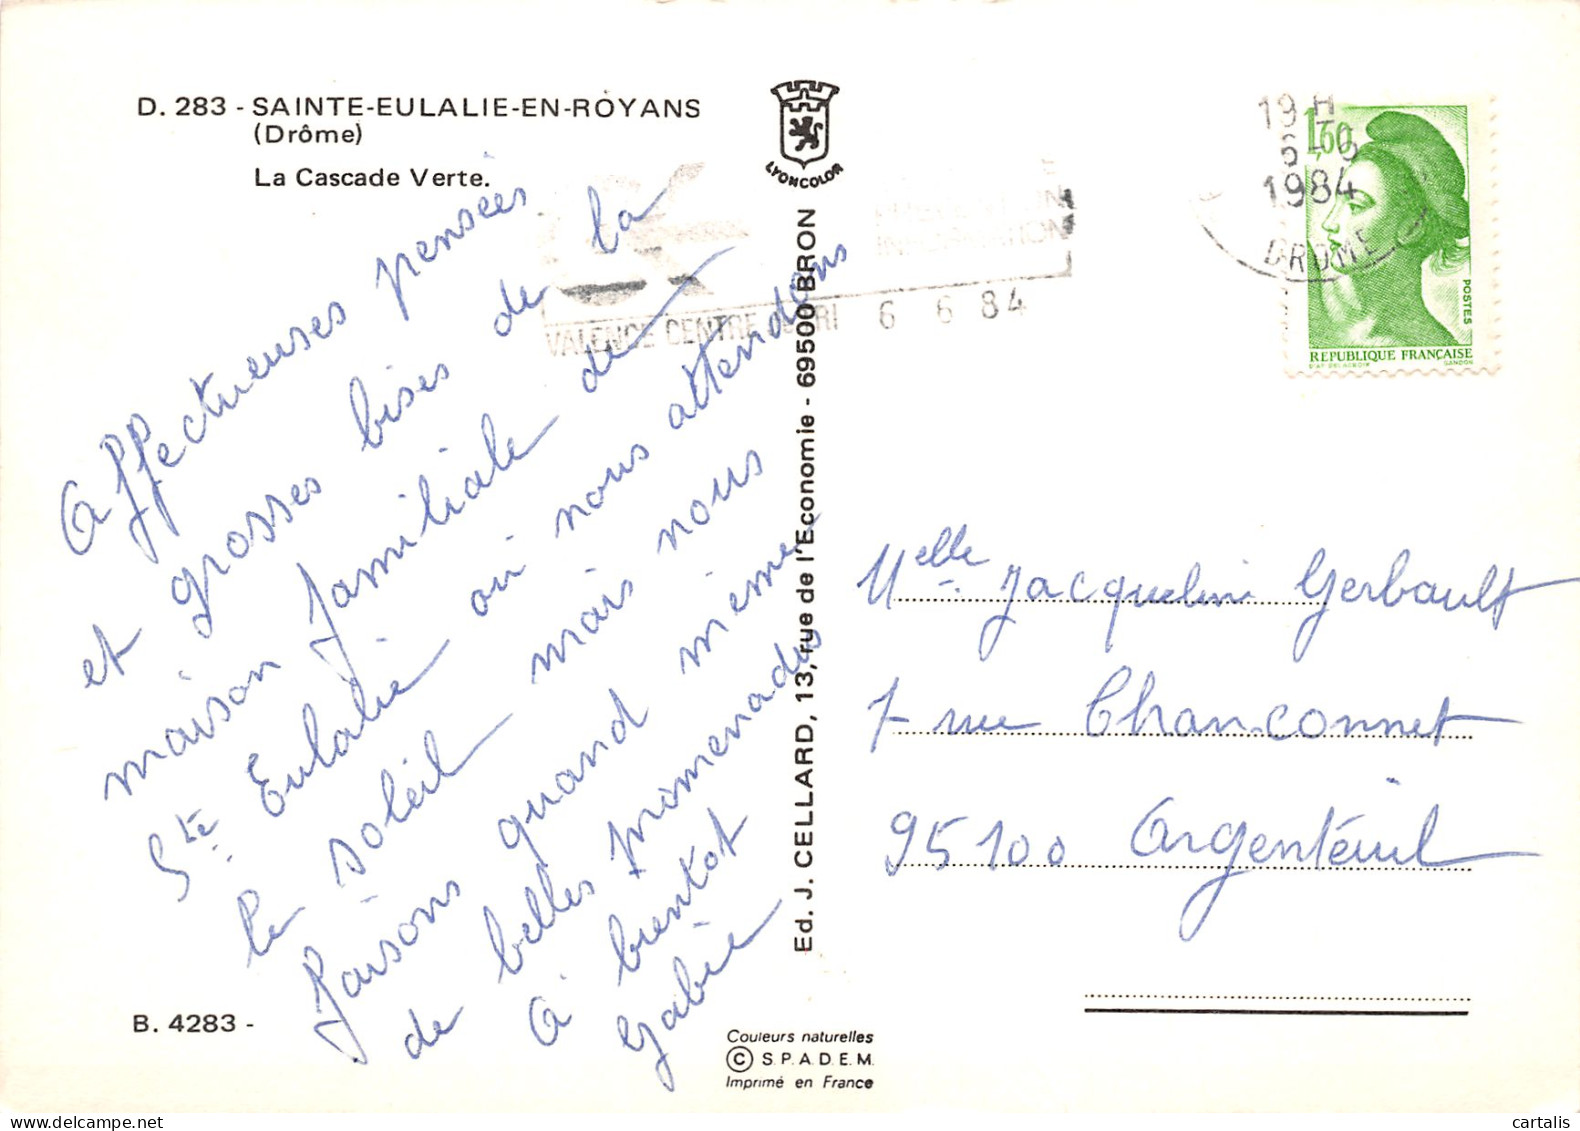 D. 283 - SAINTE-EULALIE-EN-ROYANS
(Drôme)
La Cascade Verte.
LYONCOLOR
Affectueuses pensées
et grosses bises de la
maison familiale de
Ste Eulalie où nous attendons
le soleil mais nous
faisons quand même
de belles promenades
à bientôt
Gabie
B. 4283 -
VALENCE CENTRE TRI 6 6 84
19 H
6-6
1984
DROME
1,60
POSTES
REPUBLIQUE FRANÇAISE
D'AP. DELACROIX GANDON
Ed. J. CELLARD, 13, rue de l'Economie - 69500 BRON
Melle Jacqueline Gerbault
7 rue Chanconnet
95100 Argenteuil
Couleurs naturelles
© S.P.A.D.E.M.
Imprimé en France
cartalis